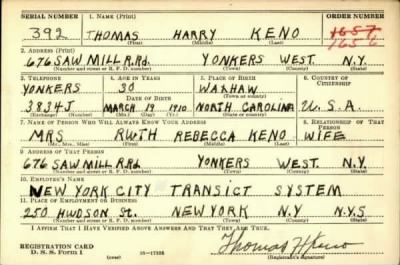 SERIAL NUMBER 1. NAME (Print) ORDER NUMBER
392 THOMAS HARRY KENO 1657
1656
(First) (Middle) (Last)
2. ADDRESS (Print)
676 SAW MILL R.Rd. YONKERS WEST. N.Y.
(Number and street or R. F. D. number) (Town) (County) (State)
3. TELEPHONE 4. AGE IN YEARS 5. PLACE OF BIRTH 6. COUNTRY OF CITIZENSHIP
YONKERS 30 WAXHAW
DATE OF BIRTH (Town or county)
3834J MARCH 19 1910 NORTH CAROLINA U.S.A.
(Exchange) (Number) (Mo.) (Day) (Yr.) (State or country)
7. NAME OF PERSON WHO WILL ALWAYS KNOW YOUR ADDRESS 8. RELATIONSHIP OF THAT PERSON
MRS RUTH REBECCA KENO WIFE
(Mr., Mrs., Miss) (First) (Middle) (Last)
9. ADDRESS OF THAT PERSON
676 SAW MILL R.Rd. YONKERS WEST. N.Y.
(Number and street or R. F. D. number) (Town) (County) (State)
10. EMPLOYER'S NAME
NEW YORK CITY TRANSICT SYSTEM
11. PLACE OF EMPLOYMENT OR BUSINESS
250 HUDSON St. NEW YORK N.Y N.Y.S
(Number and street or R. F. D. number) (Town) (County) (State)
I AFFIRM THAT I HAVE VERIFIED ABOVE ANSWERS AND THAT THEY ARE TRUE.
REGISTRATION CARD Thomas H Keno
D. S. S. FORM 1 (over) 16-17105 (Registrant's signature)